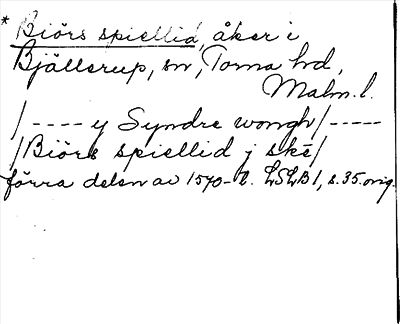 * Biörs spiellid, åker i
Bjällerup, sn, Torna hd,
Malm. l.
/ - - - - y Syndre wongh / - - - -
/ Biörs spiellid j skē /
förra delen av 1570-t. LSLB 1, s. 35. orig.